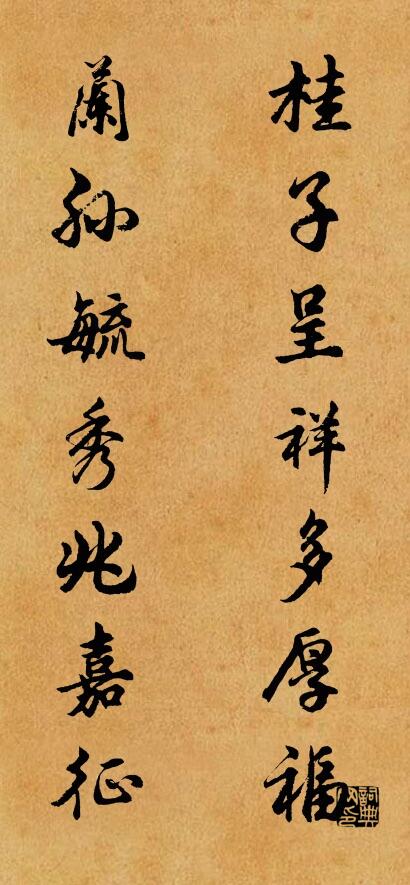 桂子呈祥多厚福
蘭孙毓秀兆嘉征